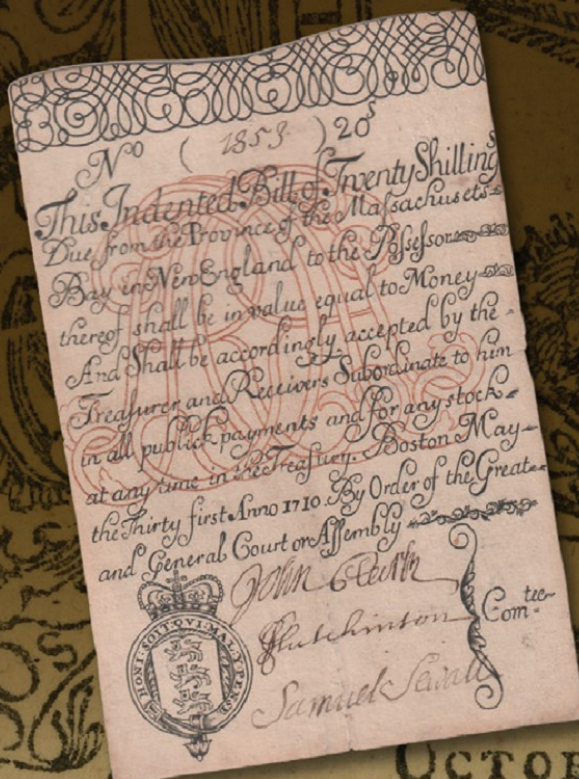 No ( 1853 ) 20s
This Indented Bill of Twenty Shillings
Due from the Province of the Massachusets
Bay in New England to the Possessor
thereof shall be in value equal to Money
And Shall be accordingly accepted by the
Treasurer and Receivers Subordinate to him
in all publick payments and for any stock
at any time in the Treasury. Boston May
the Thirty first Anno 1710. By Order of the Great
and General Court or Assembly
John Clark
Hutchinson
Com tee
Samuel Sewall
HONI·SOIT·QVI·MAL·Y·PENSE
OCTOB